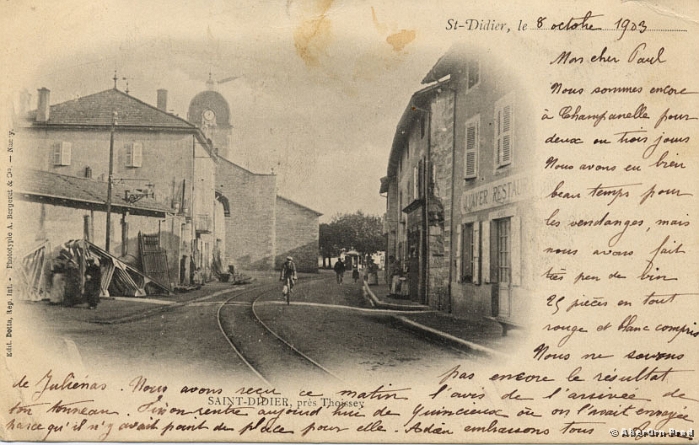 St-Didier, le 8 octobre 1903
Mon cher Paul
Nous sommes encore
à Champanelle pour
deux ou trois jours
Nous avons eu bien
beau temps pour
les vendanges, mais
nous avons fait
très peu de vin
25 pièces en tout
rouge et blanc compris
Nous ne savons
pas encore le résultat
de Juliénas. Nous avons reçu ce matin l'avis de l'arrivée de
son tonneau. Simon rentre aujourd'hui de Quincieux où on l'avait envoyée
parce qu'il n'y avait pas de place pour elle. Adieu embrassons tous
SAINT-DIDIER, près Thoissey
RESTAU
Edit. Dotta, Rep. Int. - Phototypie A. Bergeret & Cie. - Nancy